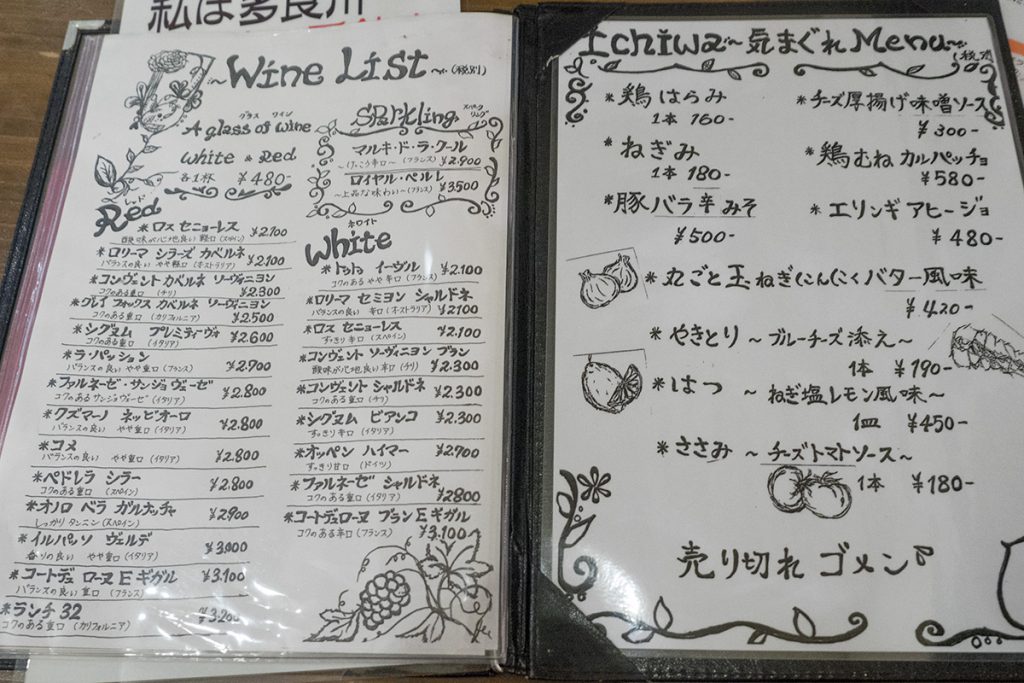 私は多良川
~ Wine List ~ (税別)
グラス ワイン
A glass of wine
White * Red
各1杯 ¥480-
Sparkling スパークリング
マルキ・ド・ラ・クール
~けっこう辛口~ (フランス) ¥2.900
ロイヤル・ペルレ
~上品な味わい~ (フランス) ¥3.500
Red レッド
*ロス セニョーレス ¥2.100
酸味が心地良い軽口 (スペイン)
*ロリーマ シラーズ カベルネ ¥2.100
バランスの良い やや軽口 (オーストラリア)
*コンヴェント カベルネ ソーヴィニヨン ¥2.300
コクのある重口 (チリ)
*グレイ フォックス カベルネ ソーヴィニヨン ¥2.500
コクのある重口 (カリフォルニア)
*シグヌム プレミティーヴォ ¥2.600
コクのある重口 (イタリア)
*ラ・パッション ¥2.700
バランスの良い やや重口 (フランス)
*ファルネーゼ・サンジョヴェーゼ ¥2.800
コクのあるサンジョヴェーゼ (イタリア)
*クズマーノ ネッビオーロ ¥2.800
バランスの良い やや重口 (イタリア)
*コメ ¥2.800
バランスの良い やや重口 (イタリア)
*ペドレラ シラー ¥2.800
コクのある重口 (スペイン)
*オノロ ベラ ガルナッチャ ¥2900
しっかりタンニン (スペイン)
*イルパッソ ヴェルデ ¥3,000
香りの良い やや重口 (イタリア)
*コートデュ ローヌ E ギガル ¥3.100
バランスの良い 重口 (フランス)
*ランチ 32 ¥3.200
コクのある重口 (カリフォルニア)
White ホワイト
*トゥトゥ イーヴル ¥2.100
コクのある やや辛口 (フランス)
*ロリーマ セミヨン シャルドネ ¥2100
バランスの良い 辛口 (オーストラリア)
*ロス セニョーレス ¥2.100
すっきり辛口 (スペイン)
*コンヴェント ソーヴィニヨン ブラン ¥2.300
酸味が心地良い辛口 (チリ)
*コンヴェント シャルドネ ¥2.300
コクのある辛口 (チリ)
*シグヌム ビアンコ ¥2.300
すっきり辛口 (イタリア)
*オッペン ハイマー ¥2.700
すっきり甘口 (ドイツ)
*ファルネーゼ シャルドネ ¥2800
コクのある重口 (イタリア)
*コートデュローヌ ブラン E ギガル ¥3.100
コクのある辛口 (フランス)
Ichiwa~気まぐれ Menu~
*鶏はらみ
1本 160-
*ねぎみ
1本 180-
*豚バラ辛みそ
¥500-
*チーズ厚揚げ味噌ソース
¥300-
*鶏むね カルパッチョ
¥580-
*エリンギ アヒージョ
¥480-
*丸ごと玉ねぎにんにくバター風味
¥420-
*やきとり ~ブルーチーズ添え~
1本 ¥190-
*はつ ~ねぎ塩レモン風味~
1皿 ¥450-
*ささみ ~チーズトマトソース~
1本 ¥180-
売り切れ ゴメン